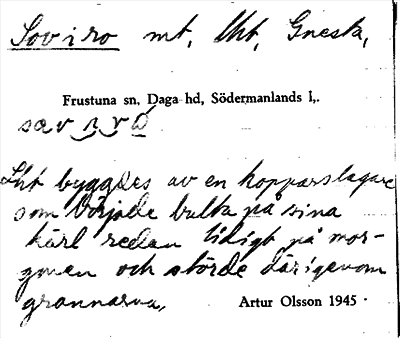 Soviro mt, lht, Gnesta,
Frustuna sn, Daga hd, Södermanlands l,.
Lht byggdes av en kopparslagare
som började bulta på sina
kärl redan tidigt på mor-
gonen och störde därigenom
grannarna,
Artur Olsson 1945